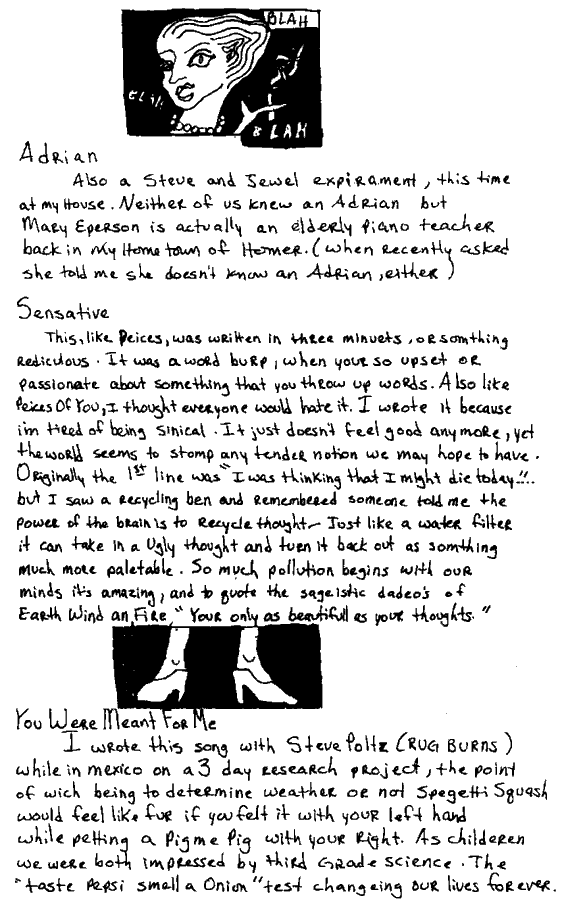 BLAH
BLAH
BLAH
Adrian
Also a Steve and Jewel expirament, this time
at my House. Neither of us knew an Adrian but
Mary Eperson is actually an elderly piano teacher
back in my Home town of Homer. (when recently asked
she told me she doesn't know an Adrian, either)
Sensative
This, like Peices, was written in three minuets, or somthing
rediculous. It was a word burp, when your so upset or
passionate about something that you throw up words. Also like
Peices Of You, I thought everyone would hate it. I wrote it because
im tired of being sinical. It just doesn't feel good any more, yet
the world seems to stomp any tender notion we may hope to have.
Originally the 1st line was "I was thinking that I might die today"...
but I saw a recycling ben and remembered someone told me the
power of the brain is to recycle thought - Just like a water filter
it can take in a ugly thought and turn it back out as somthing
much more paletable. So much pollution begins with our
minds it's amazing, and to quote the sageistic dadeo's of
Earth Wind an Fire, "Your only as beautifull as your thoughts."
You Were Meant For Me
I wrote this song with Steve Poltz (RUG BURNS)
while in mexico on a 3 day research project, the point
of wich being to determine weather or not Spegetti Squash
would feel like fur if you felt it with your left hand
while petting a Pigme Pig with your Right. As childeren
we were both impressed by third Grade science. The
"taste Pepsi smell a Onion" test changeing our lives forever.